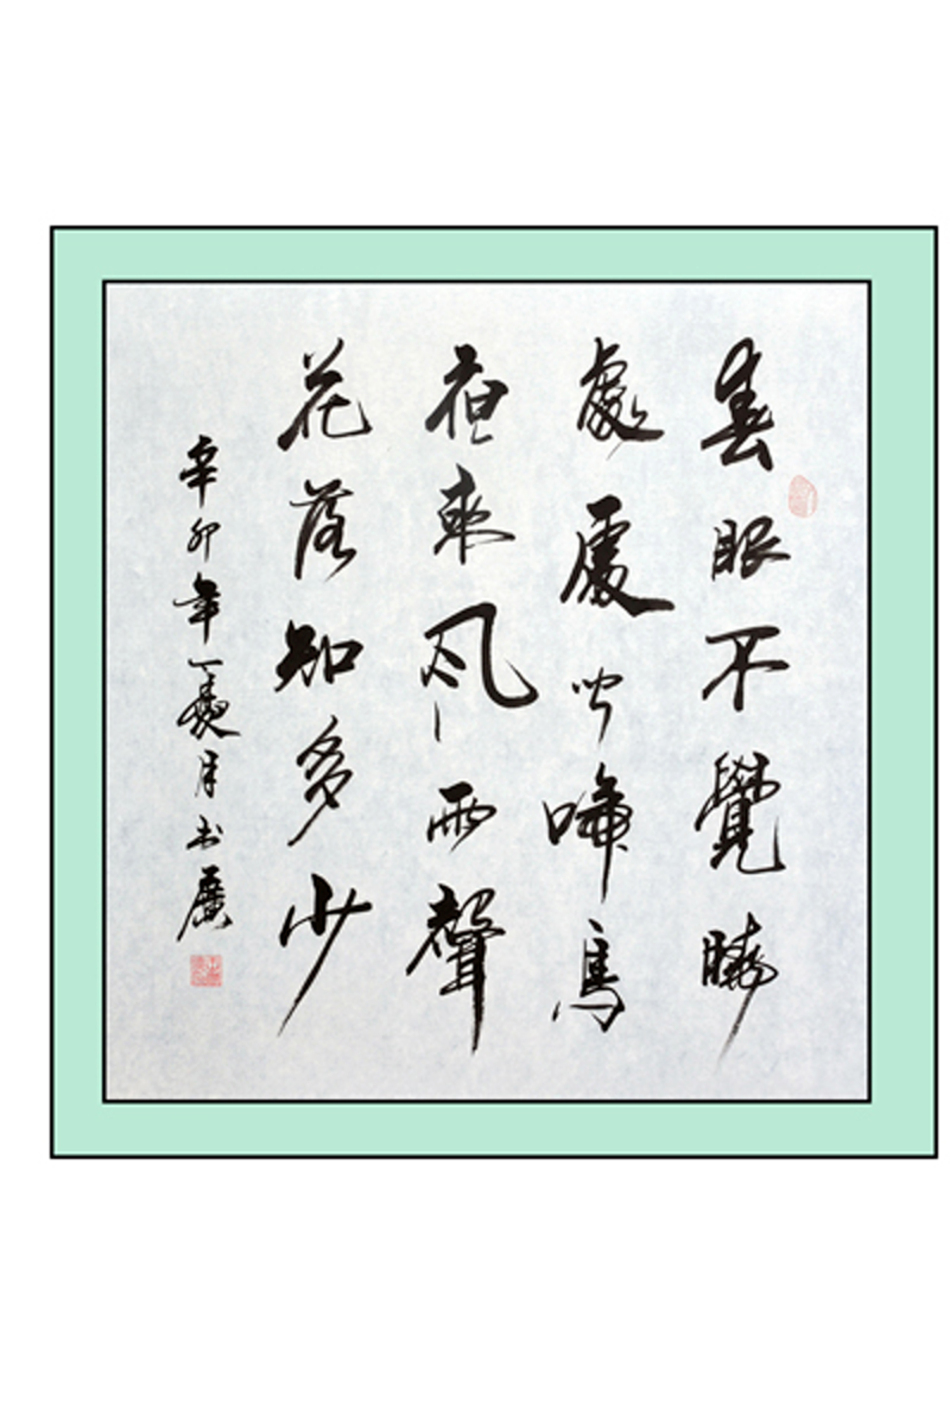 春眠不覺曉
處處聞啼鳥
夜来風雨聲
花落知多少
辛卯年夏月书